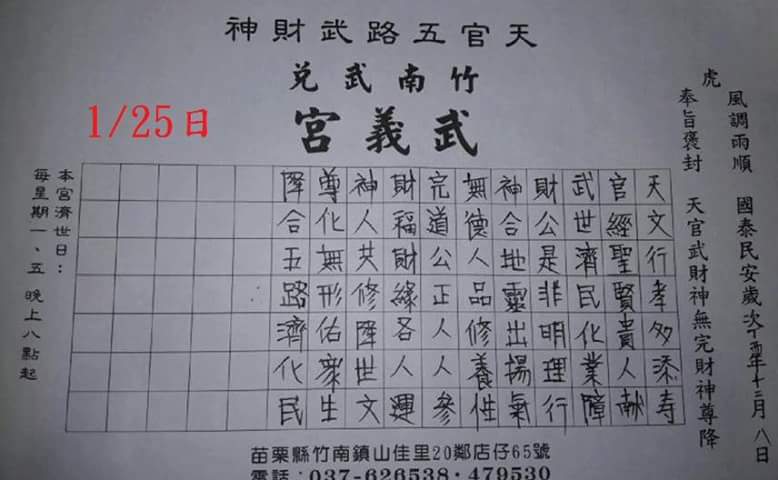 天官五路武財神
竹南武兌
武義宮
1/25日
虎
風調雨順 國泰民安歲次丁酉年十二月八日
奉旨褒封 天官武財神無完財神尊降
天文行孝多添寿
官經聖賢貴人献
武世濟民化業障
財公是非明理行
神合地靈出揚氣
無德人品修養性
完道公正人人參
財福財緣各人運
神人共修陞世文
尊化無形佑眾生
降合五路濟化民
本宮濟世日：
每星期一、五 晚上八點起
苗栗縣竹南鎮山佳里20鄰店仔65號
電話：037-626538·479530